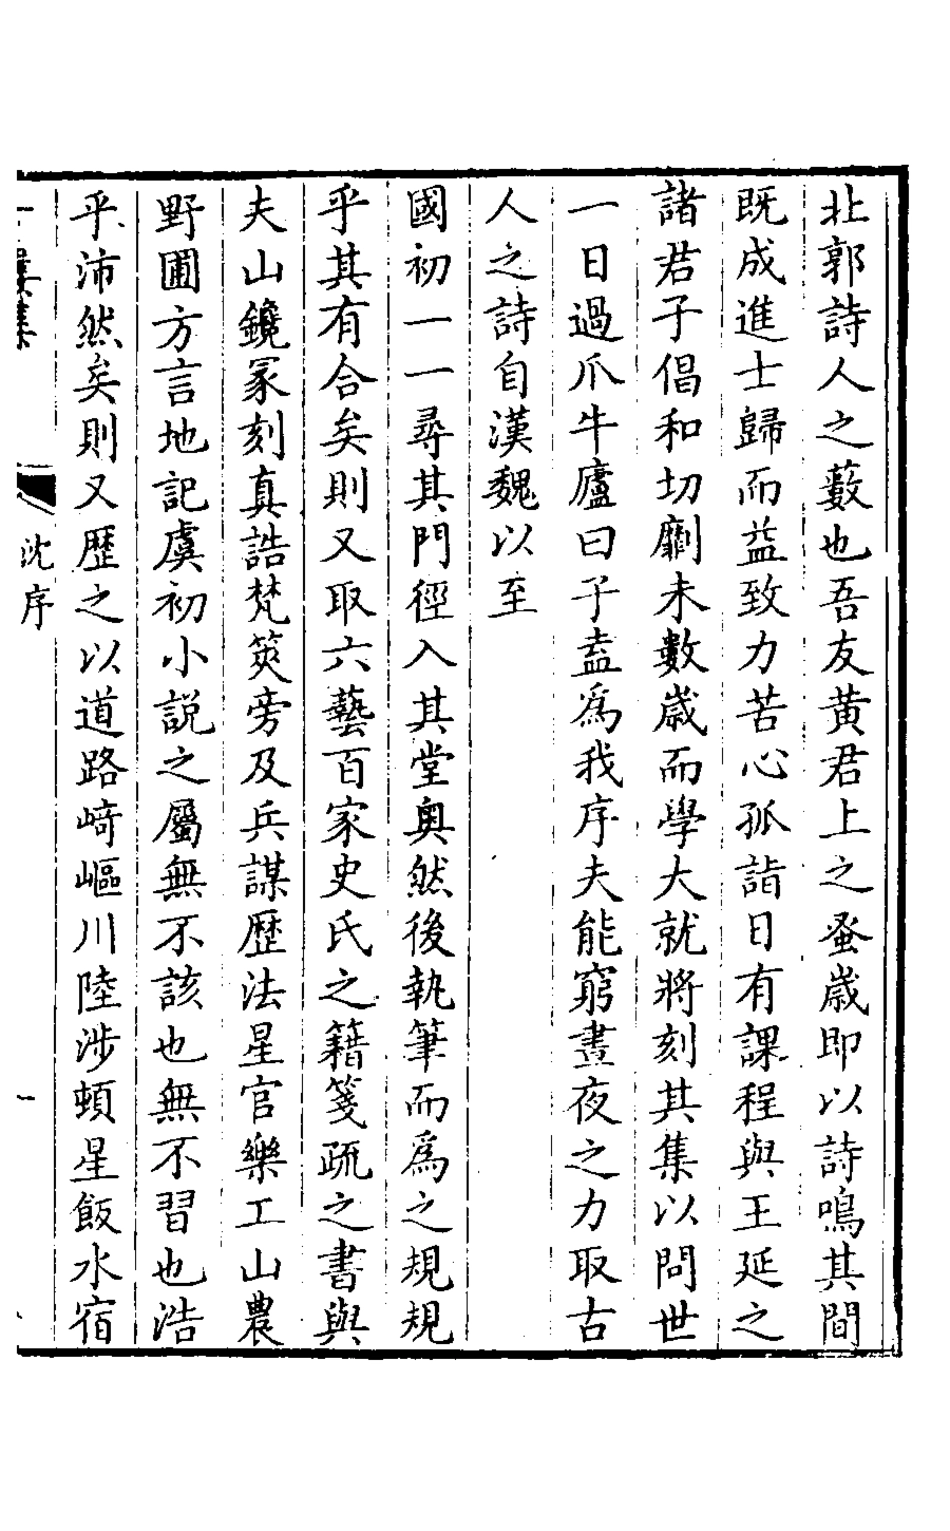 北郭詩人之藪也吾友黄君上之蚤歲即以詩鳴其間
既成進士歸而益致力苦心孤詣日有課程與王延之
諸君子倡和切劘未數歲而學大就將刻其集以問世
一日過爪牛廬曰子盍爲我序夫能窮晝夜之力取古
人之詩自漢魏以至
國初一一尋其門徑入其堂奥然後執筆而爲之規規
乎其有合矣則又取六藝百家史氏之籍箋疏之書與
夫山鑱冢刻真誥梵筴旁及兵謀歷法星官樂工山農
野圃方言地記虞初小説之屬無不該也無不習也浩
乎沛然矣則又歷之以道路崎嶇川陸涉頓星飯水宿
沈序
一